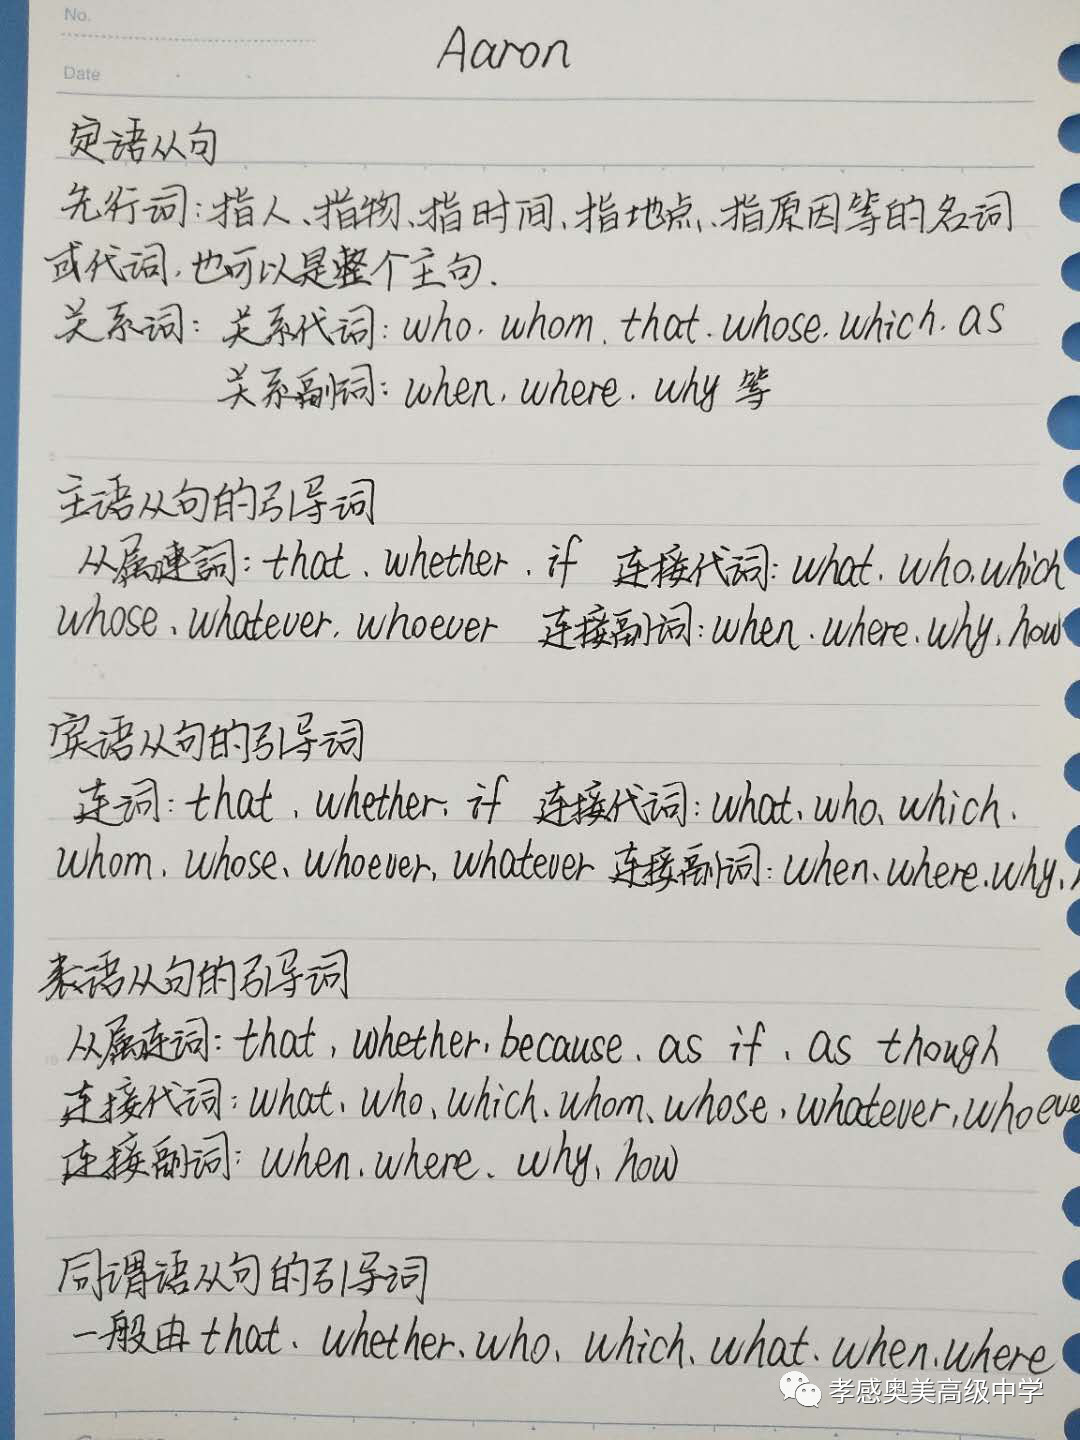 No.
Aaron
Date
定语从句
先行词:指人、指物、指时间、指地点、指原因等的名词
或代词,也可以是整个主句.
关系词: 关系代词: who. whom. that. whose. which. as
关系副词: when. where. why 等
主语从句的引导词
从属連詞: that、whether、if 连接代词: what. who. which
whose、whatever. whoever 连接副词: when. where. why. how
宾语从句的引导词
连词: that、whether. if 连接代词: what、who、which.
whom. whose、whoever, whatever 连接副词: when、where. why.
表语从句的引导词
从属连词: that, whether, because、as if、as though
连接代词: what、who、which、whom、whose、whatever, whoeve
连接副词: when. where、why、how
同谓语从句的引导词
一般由 that、whether、who、which、what、when. where
孝感奥美高级中学